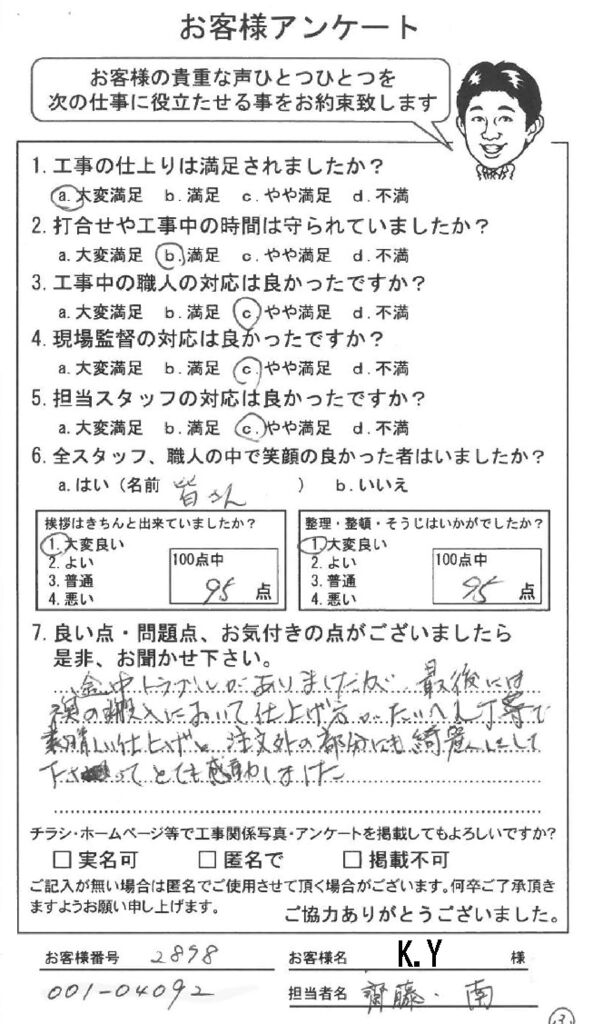 お客様アンケート
お客様の貴重な声ひとつひとつを
次の仕事に役立たせる事をお約束致します
1.工事の仕上りは満足されましたか？
a.大変満足 b.満足 c.やや満足 d.不満
2.打合せや工事中の時間は守られていましたか？
a.大変満足 b.満足 c.やや満足 d.不満
3.工事中の職人の対応は良かったですか？
a.大変満足 b.満足 c.やや満足 d.不満
4.現場監督の対応は良かったですか？
a.大変満足 b.満足 c.やや満足 d.不満
5.担当スタッフの対応は良かったですか？
a.大変満足 b.満足 c.やや満足 d.不満
6.全スタッフ、職人の中で笑顔の良かった者はいましたか？
a.はい（名前 皆さん ） b.いいえ
挨拶はきちんと出来ていましたか？
1.大変良い
2.よい
3.普通
4.悪い
100点中
95 点
整理・整頓・そうじはいかがでしたか？
1.大変良い
2.よい
3.普通
4.悪い
100点中
95 点
7.良い点・問題点、お気付きの点がございましたら
是非、お聞かせ下さい。
途中トラブルがありましたが 最後には
襖の搬入において仕上げ方がたいへん丁寧で
素晴しい仕上げと 注文外の部分にも綺麗にして
下さってとても感動しました
チラシ・ホームページ等で工事関係写真・アンケートを掲載してもよろしいですか？
□ 実名可 □ 匿名で □ 掲載不可
ご記入が無い場合は匿名でご使用させて頂く場合がございます。何卒ご了承頂き
ますようお願い申し上げます。
ご協力ありがとうございました。
お客様番号 2898
お客様名 K.Y 様
001-04092
担当者名 齊藤・南